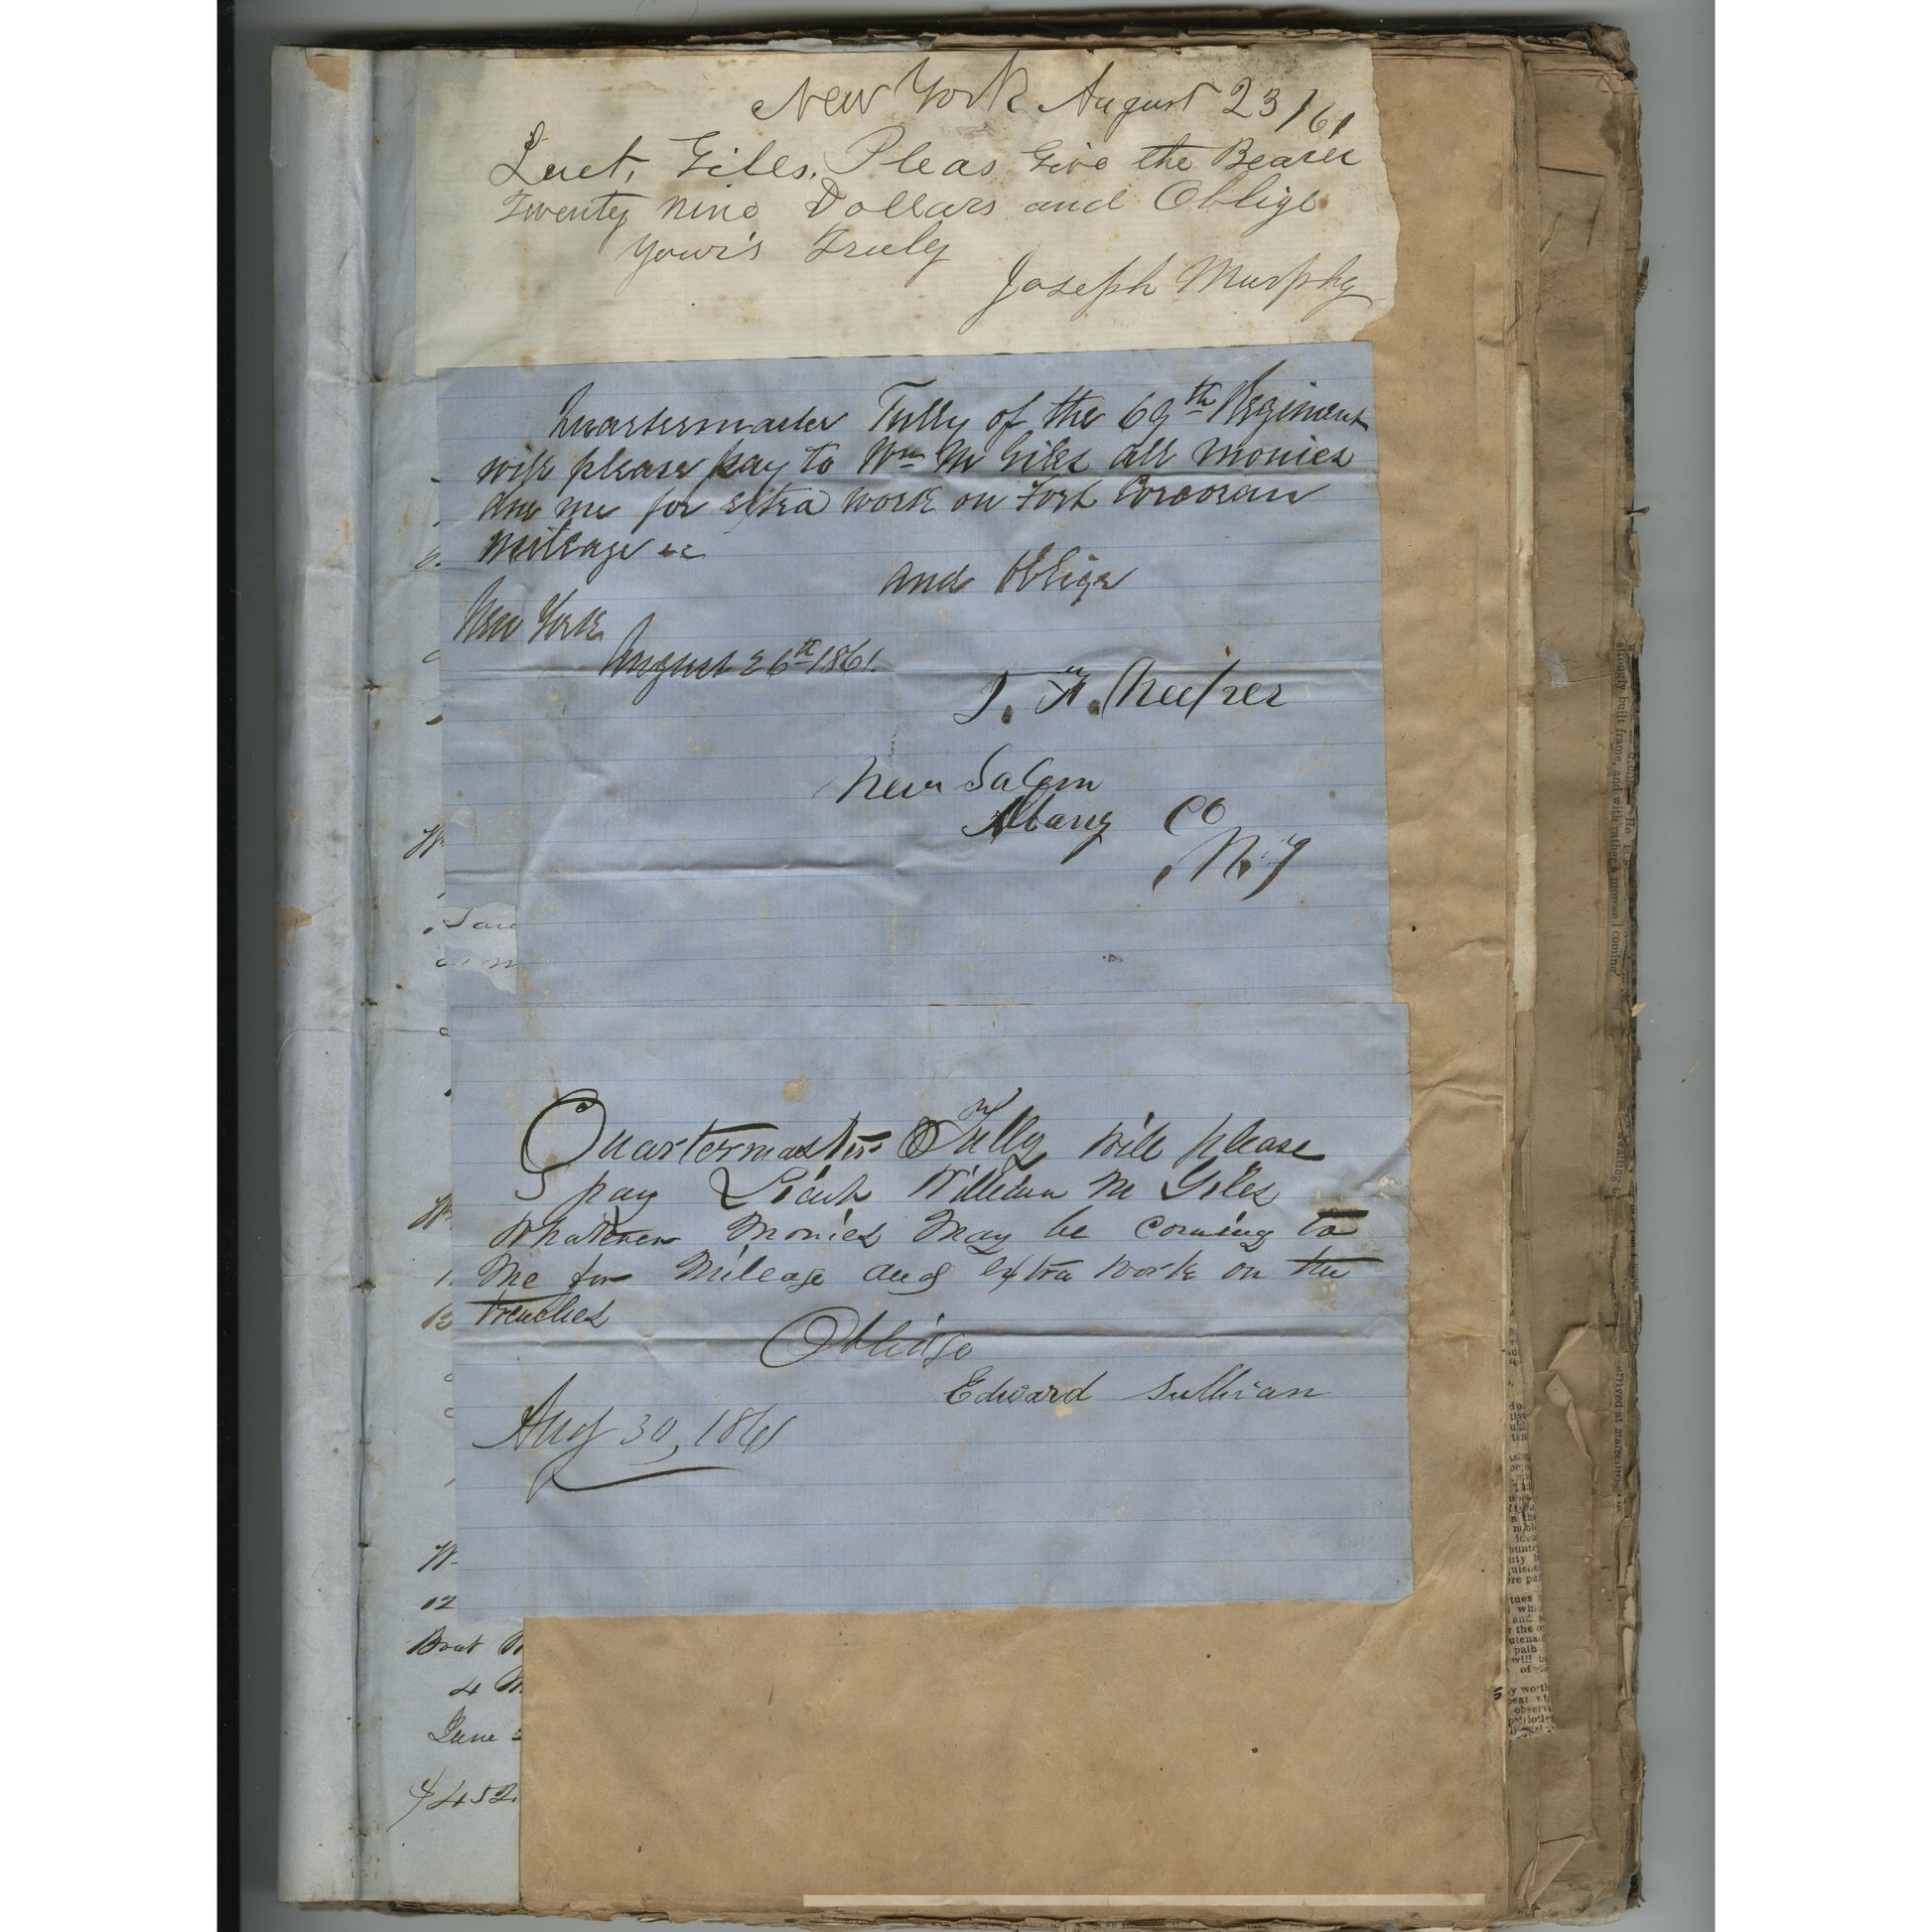 New York August 23/61
Luet, Giles, Pleas Give the Bearer
Twenty nine Dollars and Oblige
Your's Truly
Joseph Murphy
Quartermaster Tully of the 69th Regiment
will please pay to Wm M Giles all monies
due me for extra work on Fort Corcoran
Mileage &c
and Oblige
New York
August 26th 1861.
New Salem
Albany Co
N.Y
Quartermaster Tully will please
pay Lieut William M Giles
Whatever Monies May be coming to
Me for Mileage and extra work on the
trenches
Oblidge
Edward Sullivan
Aug 30, 1861
12
Boat
4
June
$452.